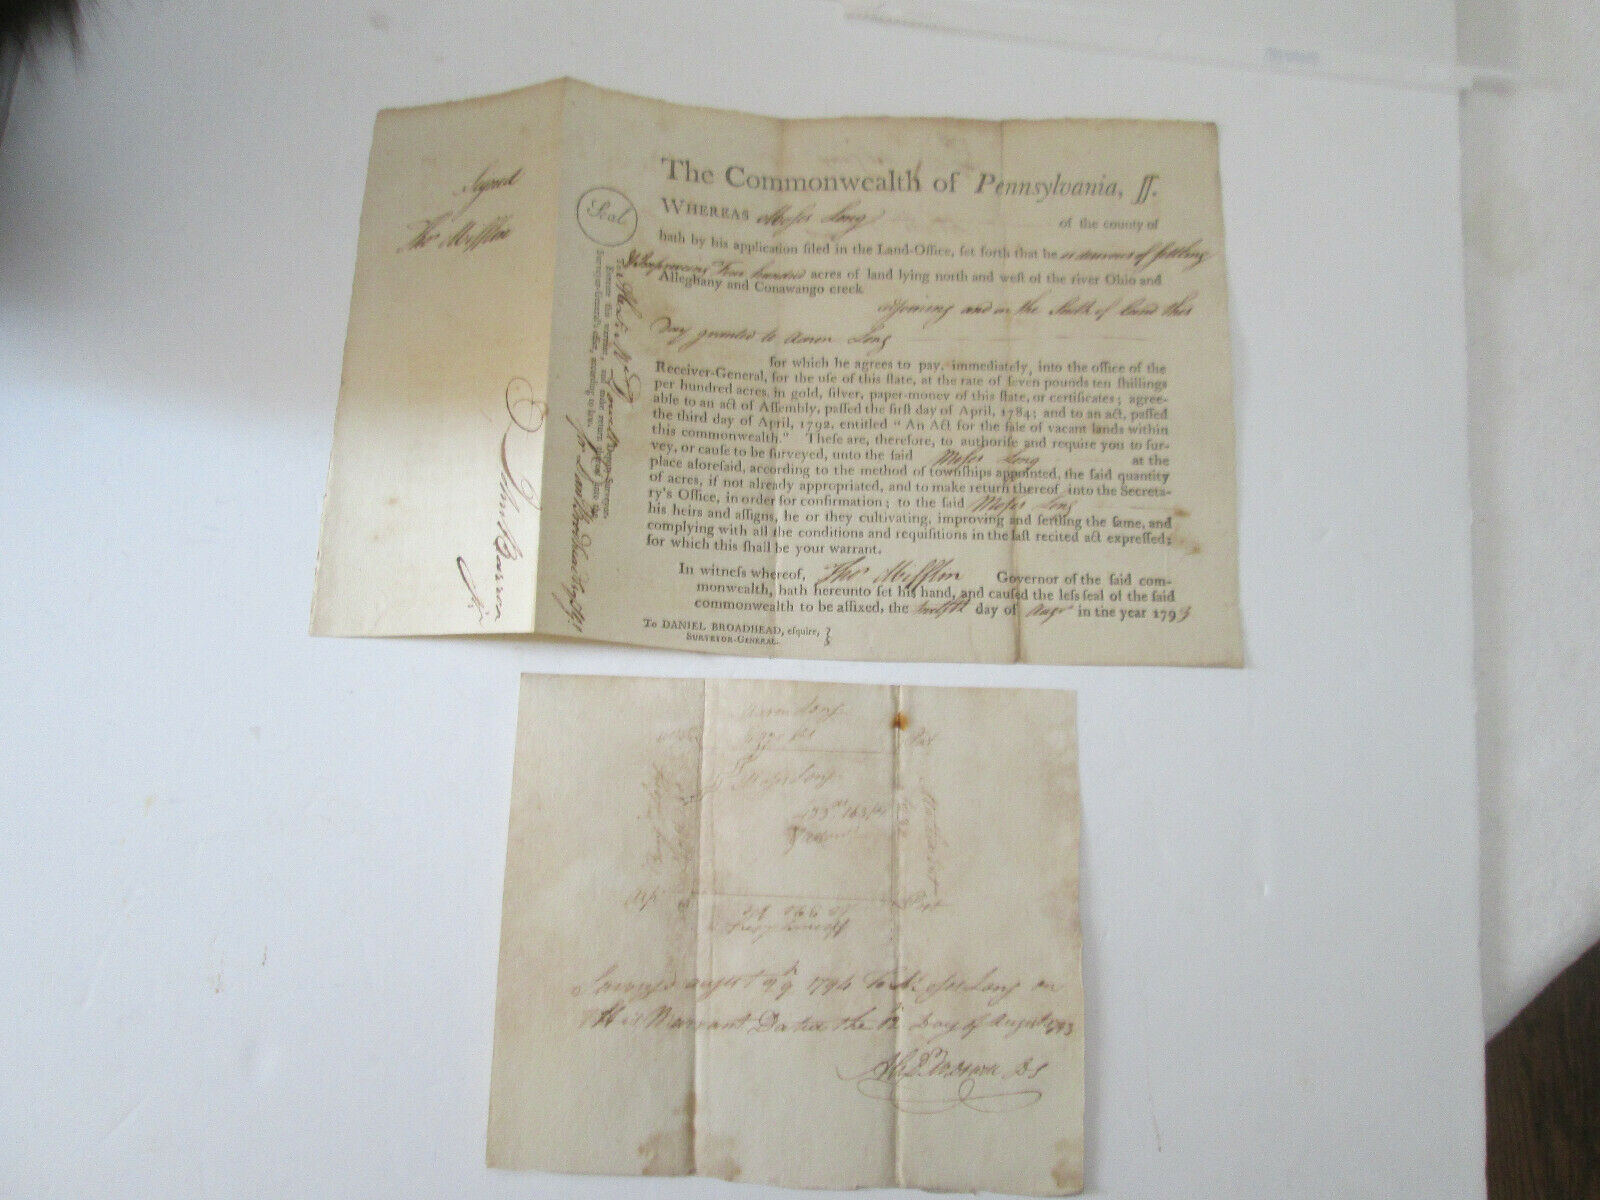 Signed
Thos Mifflin
Seal
The Commonwealth of Pennsylvania, ſſ.
WHEREAS Moſes Long of the county of
hath by his application filed in the Land-Office, ſet forth that he is desirous of ſettling
& Improveing Four hundred acres of land lying north and weſt of the river Ohio and
Alleghany and Conawango creek
adjoining and on the South of land this
Day granted to Aaron Long
for which he agrees to pay, immediately, into the office of the
Receiver-General, for the uſe of this ſtate, at the rate of ſeven pounds ten ſhillings
per hundred acres, in gold, ſilver, paper-money of this ſtate, or certificates; agree-
able to an act of Aſſembly, paſſed the firſt day of April, 1784; and to an act, paſſed
the third day of April, 1792, entitled "An Act for the ſale of vacant lands within
this commonwealth." Theſe are, therefore, to authoriſe and require you to ſur-
vey, or cauſe to be ſurveyed, unto the ſaid Moſes Long at the
place aforeſaid, according to the method of townſhips appointed, the ſaid quantity
of acres, if not already appropriated, and to make return thereof into the Secreta-
ry's Office, in order for confirmation; to the ſaid Moſes Long
his heirs and aſſigns, he or they cultivating, improving and ſettling the ſame, and
complying with all the conditions and requiſitions in the laſt recited act expreſſed;
for which this ſhall be your warrant.
In witneſs whereof, Thos Mifflin Governor of the ſaid com-
monwealth, hath hereunto ſet his hand, and cauſed the leſs ſeal of the ſaid
commonwealth to be affixed, the twelfth day of Augt in the year 1793
To DANIEL BROADHEAD, eſquire,
SURVEYOR-GENERAL.
Deputy-Surveyor.
Execute this warrant, and make return thereof into the
Surveyor-General's office, according to law.
Daniel Brodhead
Aaron Long
Moses Long
Post
Surveyed august 9th 1794 to Moses Long on
His Warrant Dated the 12 Day of August 1793
DS